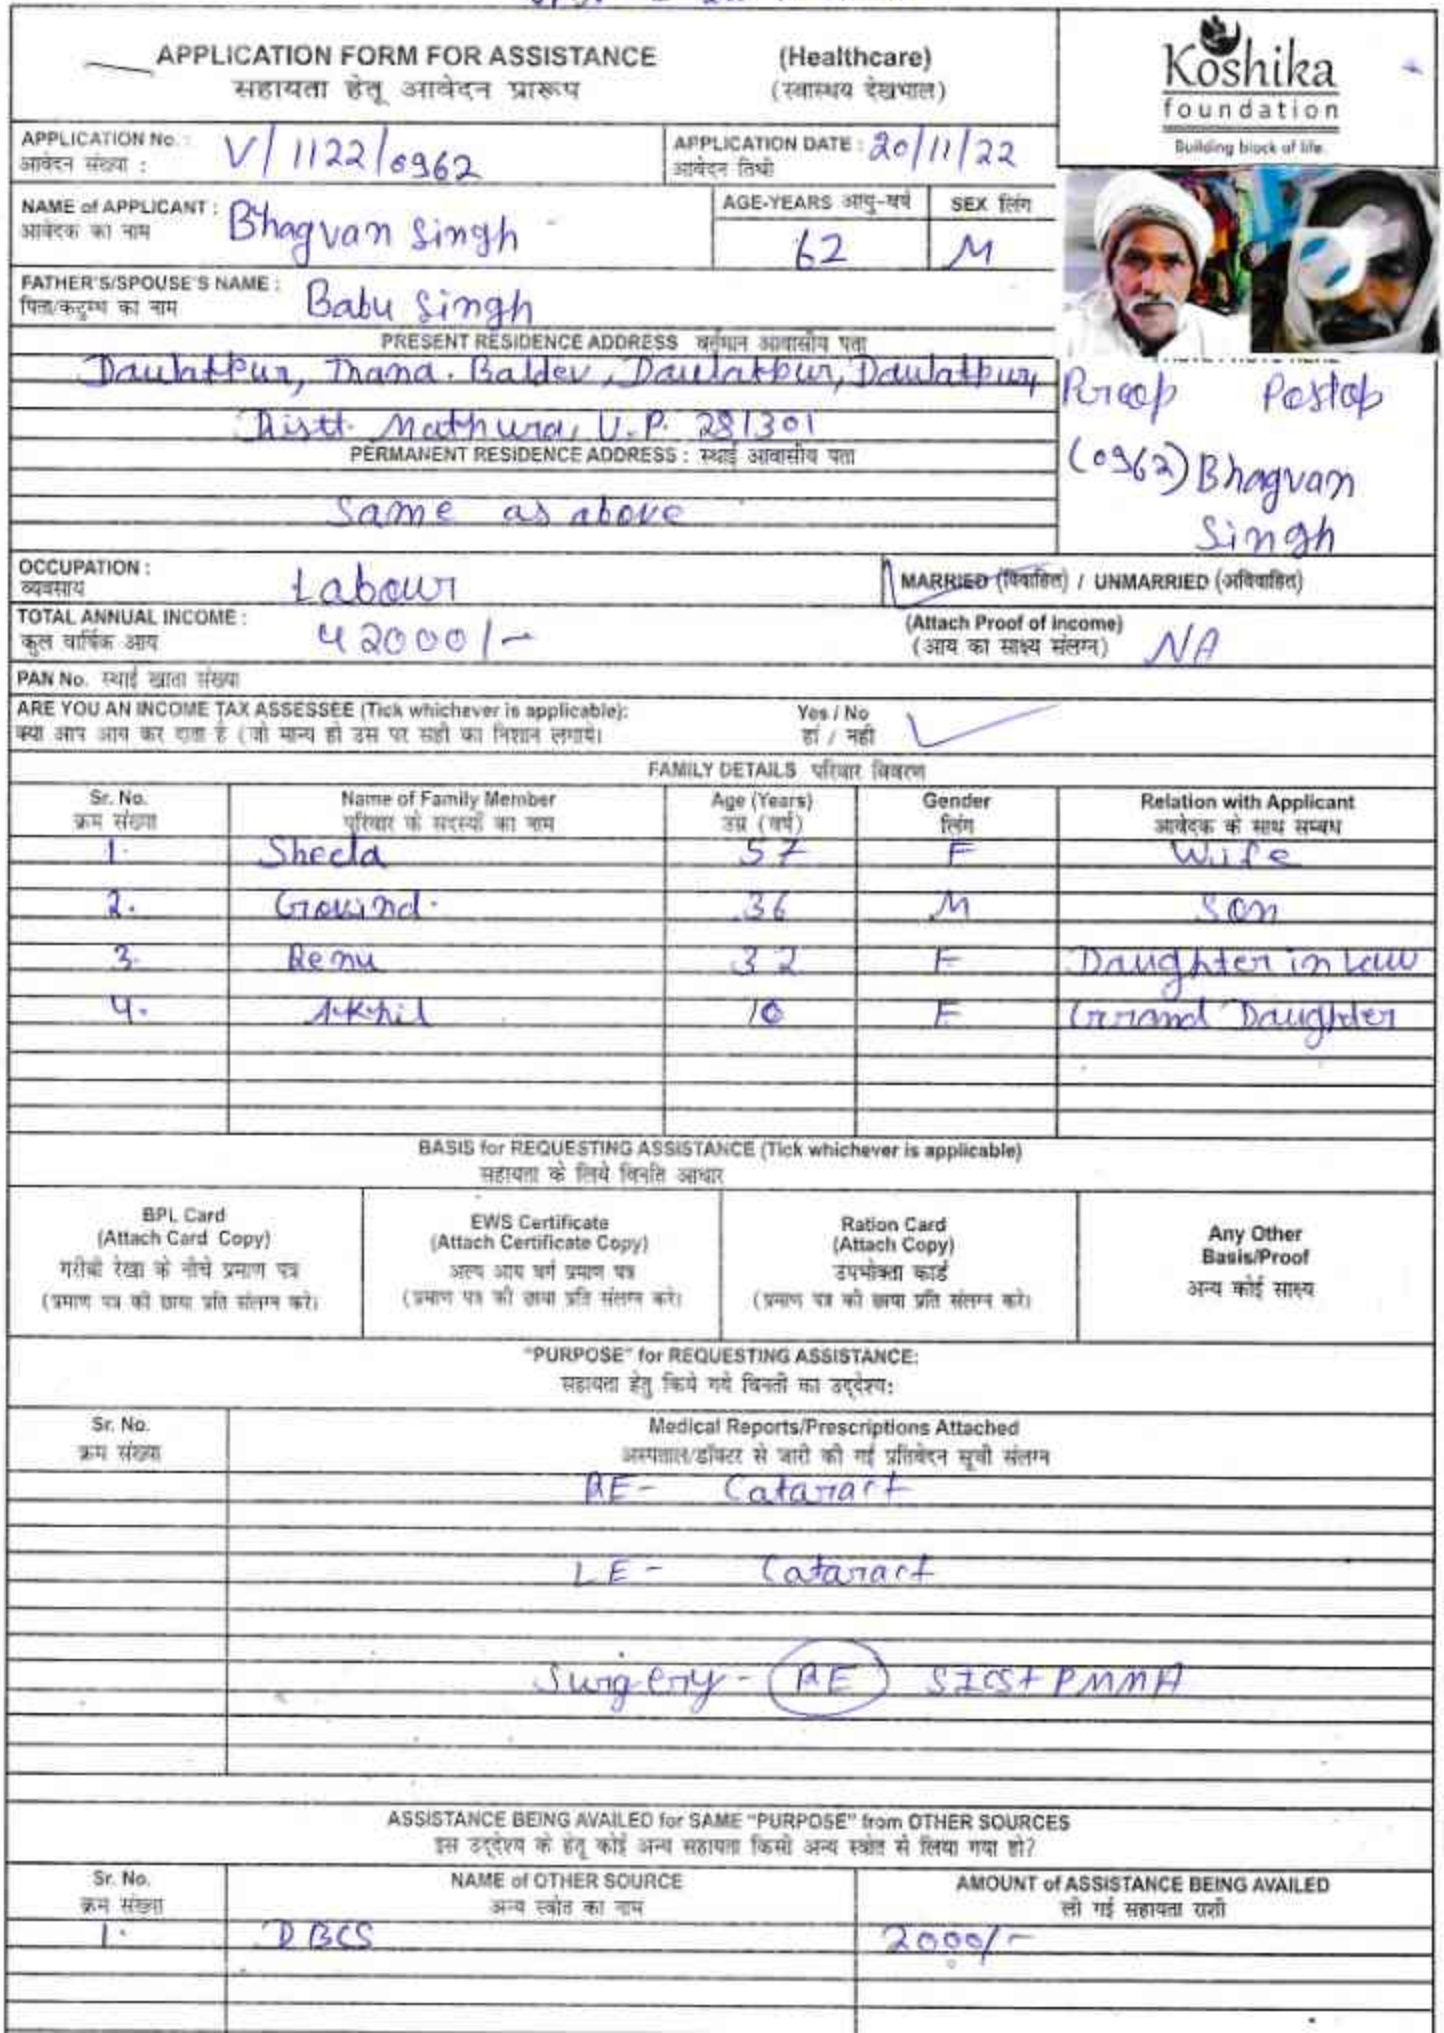 APPLICATION FORM FOR ASSISTANCE (Healthcare)
सहायता हेतू आवेदन प्रारूप (स्वास्थय देखभाल)
Koshika
foundation
Building block of life.
APPLICATION No. : V/1122/0962 APPLICATION DATE : 20/11/22
आवेदन संख्या : आवेदन तिथी
NAME of APPLICANT : Bhagvan Singh AGE-YEARS आयु-वर्ष SEX लिंग
आवेदक का नाम 62 M
FATHER'S/SPOUSE'S NAME : Babu Singh
पिता/कटुम्ब का नाम
PRESENT RESIDENCE ADDRESS वर्तमान आवासीय पता
Daulatpur, Thana. Baldev, Daulatpur, Daulatpur,
Distt. Mathura, U.P. 281301
PERMANENT RESIDENCE ADDRESS : स्थाई आवासीय पता
Same as above
Preop Postop
(0962) Bhagvan
Singh
OCCUPATION : Labour MARRIED (विवाहित) / UNMARRIED (अविवाहित)
व्यवसाय
TOTAL ANNUAL INCOME : 42000/- (Attach Proof of Income) NA
कुल वार्षिक आय (आय का साक्ष्य संलग्न)
PAN No. स्थाई खाता संख्या
ARE YOU AN INCOME TAX ASSESSEE (Tick whichever is applicable): Yes / No
क्या आप आय कर दाता है (जो मान्य हो उस पर सही का निशान लगाये। हां / नही
FAMILY DETAILS परिवार विवरण
Sr. No. Name of Family Member Age (Years) Gender Relation with Applicant
क्रम संख्या परिवार के सदस्यों का नाम उम्र (वर्ष) लिंग आवेदक के साथ सम्बध
1. Sheela 57 F Wife
2. Govind. 36 M Son
3. Renu 32 F Daughter in law
4. Akhil 10 F Grand Daughter
BASIS for REQUESTING ASSISTANCE (Tick whichever is applicable)
सहायता के लिये विनति आधार
BPL Card
(Attach Card Copy)
गरीबी रेखा के नीचे प्रमाण पत्र
(प्रमाण पत्र की छाया प्रति संलग्न करे।
EWS Certificate
(Attach Certificate Copy)
अल्प आय वर्ग प्रमाण पत्र
(प्रमाण पत्र की छाया प्रति संलग्न करे।
Ration Card
(Attach Copy)
उपभोक्ता कार्ड
(प्रमाण पत्र की छाया प्रति संलग्न करे।
Any Other
Basis/Proof
अन्य कोई साक्ष्य
"PURPOSE" for REQUESTING ASSISTANCE:
सहायता हेतु किये गये विनती का उद्देश्य:
Sr. No. Medical Reports/Prescriptions Attached
क्रम संख्या अस्पताल/डॉक्टर से जारी की गई प्रतिवेदन सूची संलग्न
RE- Cataract
LE- Cataract
Surgery- RE SICS+PMMA
ASSISTANCE BEING AVAILED for SAME "PURPOSE" from OTHER SOURCES
इस उद्देश्य के हेतू कोई अन्य सहायता किसी अन्य स्त्रोत से लिया गया हो?
Sr. No. NAME of OTHER SOURCE AMOUNT of ASSISTANCE BEING AVAILED
क्रम संख्या अन्य स्त्रोत का नाम ली गई सहायता राशी
1. DBCS 2000/-